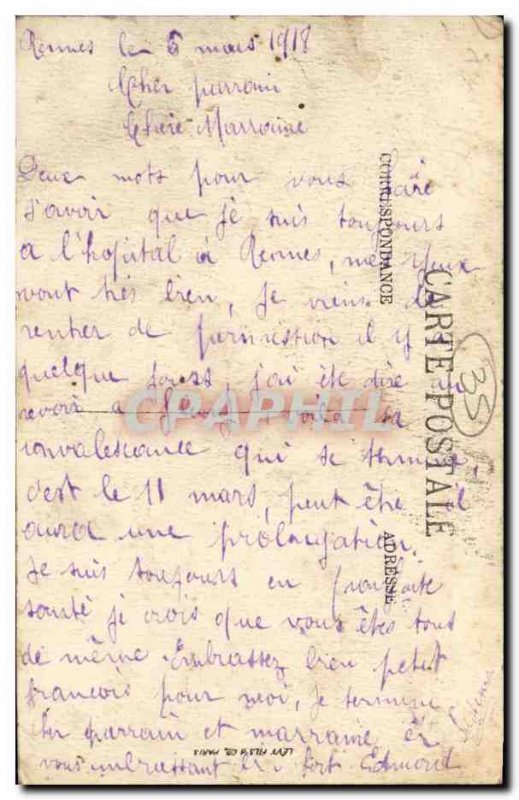 Rennes le 5 mars 1918
Cher parrain
Chère Marraine
Deux mots pour vous faire
savoir que je suis toujours
a l'hopital à Rennes, mes yeux
vont très bien, je viens de
rentrer de permission il y a
quelque jours j'ai été dire au
revoir a voila sa
convalescance qui se termine,
c'est le 11 mars, peut être il
aura une prolongation.
Je suis toujours en parfaite
santé je crois que vous êtes tous
de même Embrassez bien petit
francois pour moi, je termine
cher parrain et marraine en
vous embrassant fort Edmond
CORRESPONDANCE
CARTE POSTALE
ADRESSE
LÉVY FILS & CO. PARIS
35
CPAPHIL